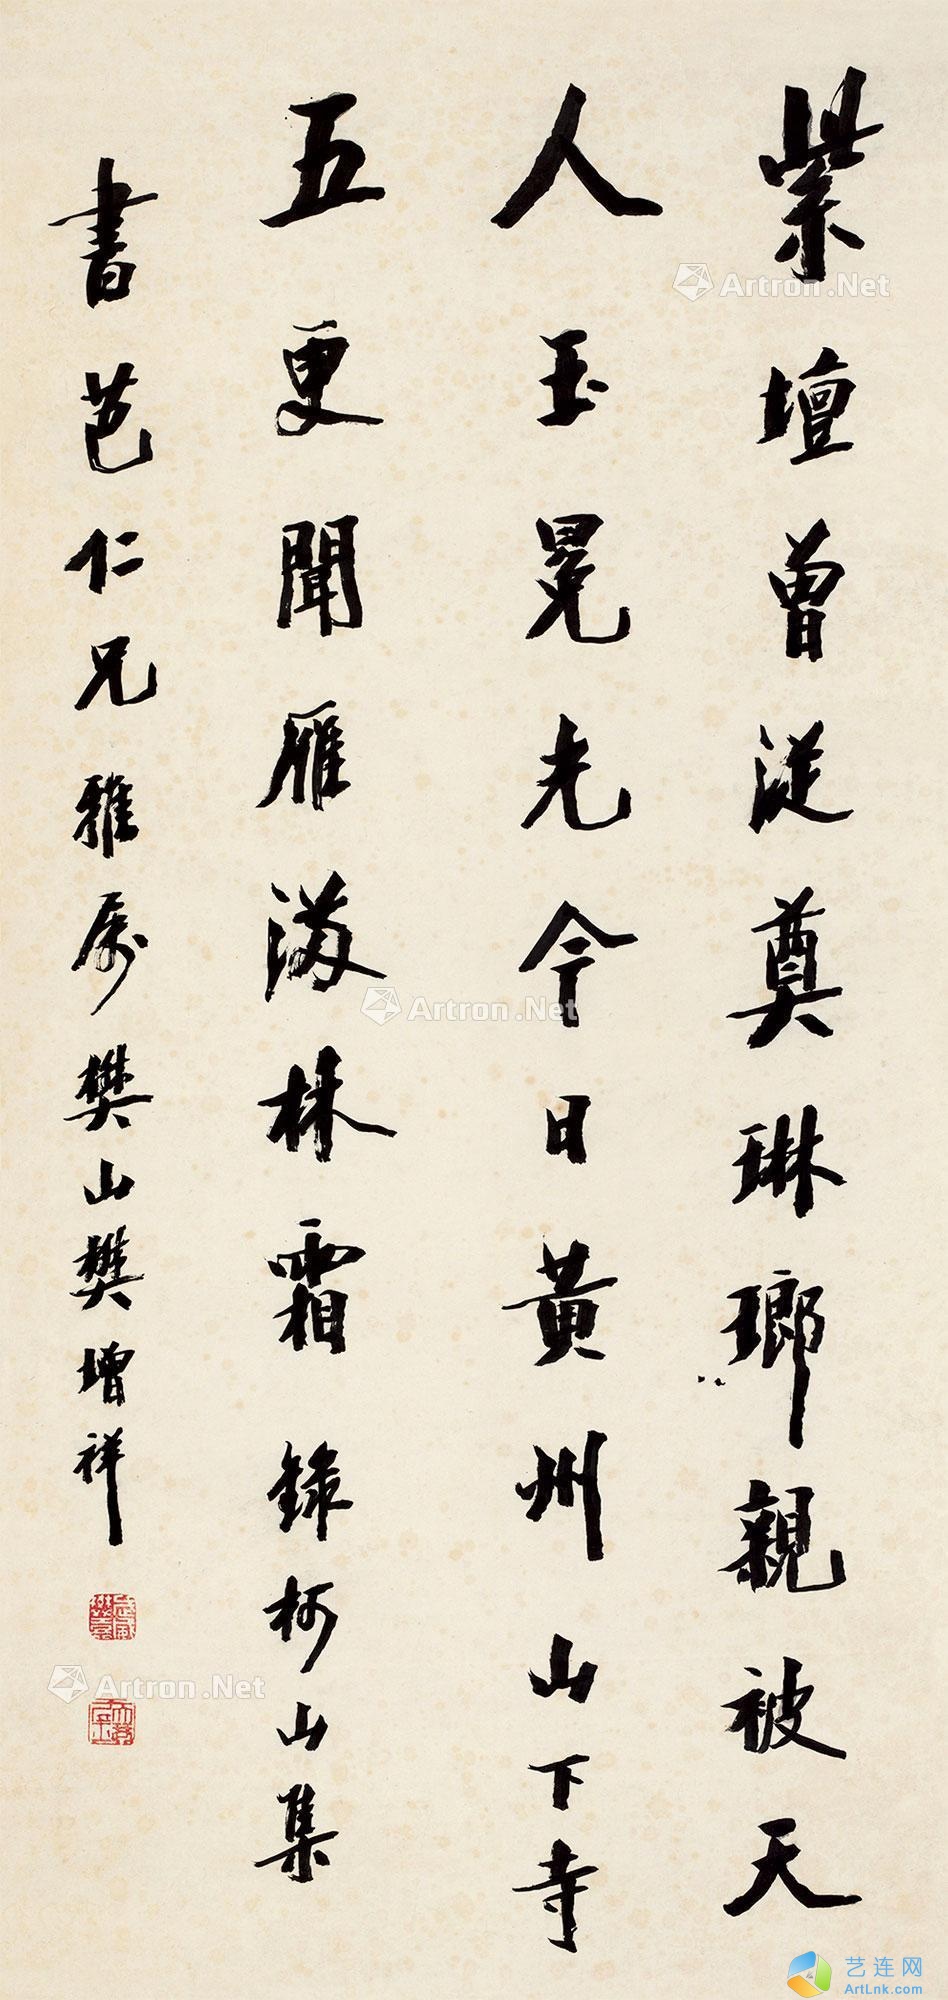 紫壇曾從奠琳瑯親被天
人玉冕光今日黃州山下寺
五更聞雁滿林霜 錄柯山集
書芭仁兄雅屬樊山樊增祥
Artron.Net
Artron.Net
Artron.Net
艺连网
ArtLnk.com